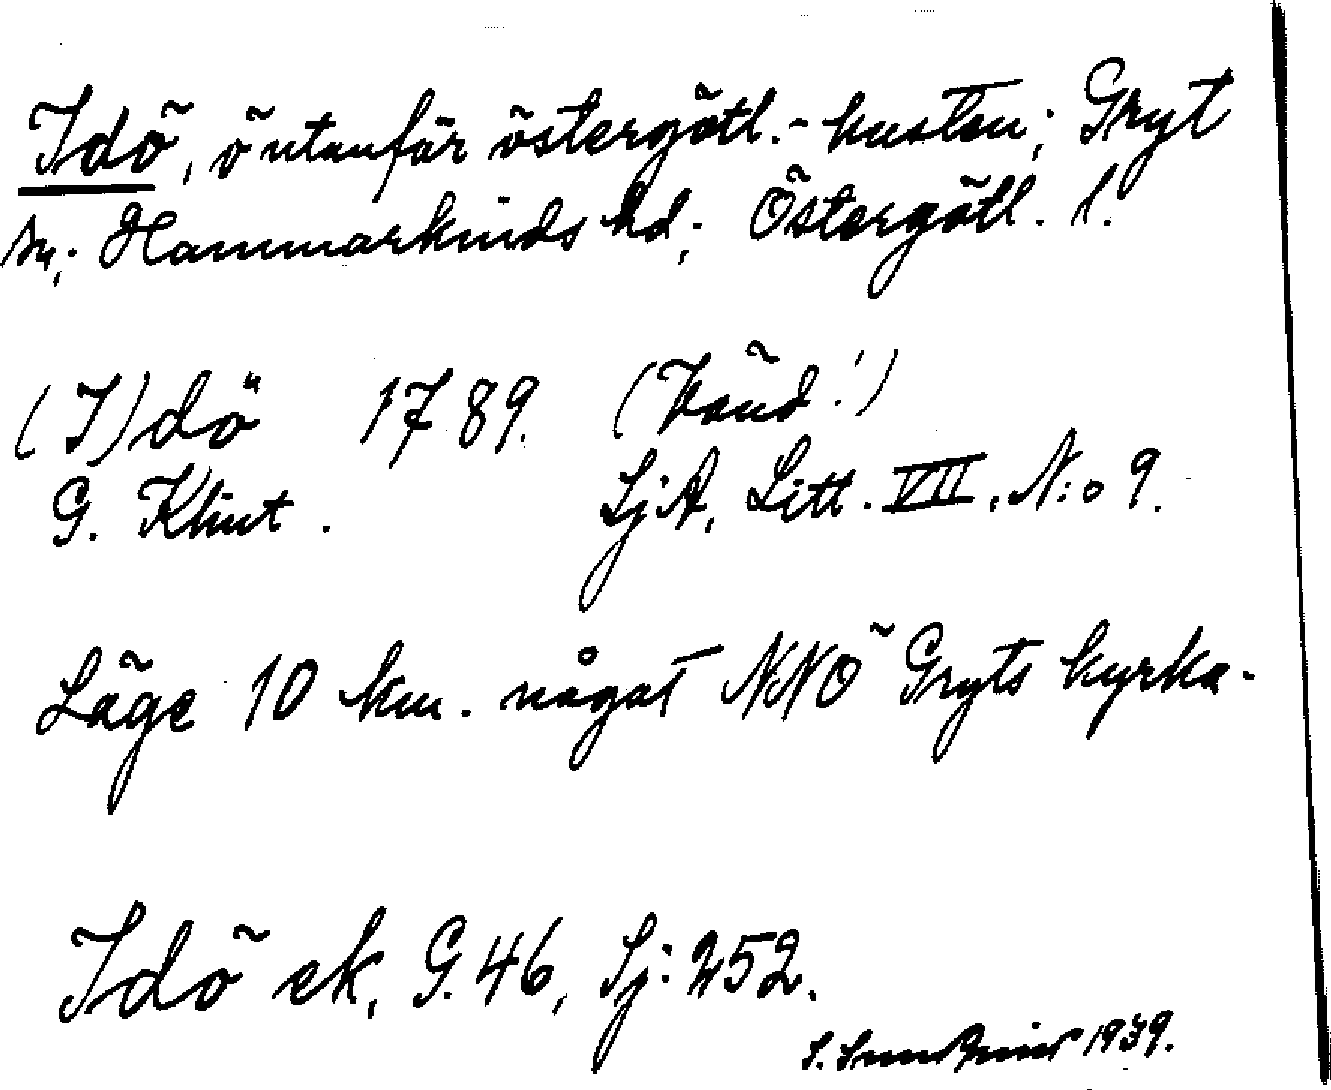 Idö, ö utanför östergötl.-kusten; Gryt
sn; Hammarkinds hd; Östergötl. l.
(I)dö 1789. (Vänd!)
G. Klint. SjA, Litt. VII, N:o 9.
Läge 10 km. något NNÖ Gryts kyrka.
Idö ek, G. 46, Sj: 252.
S. 1939.